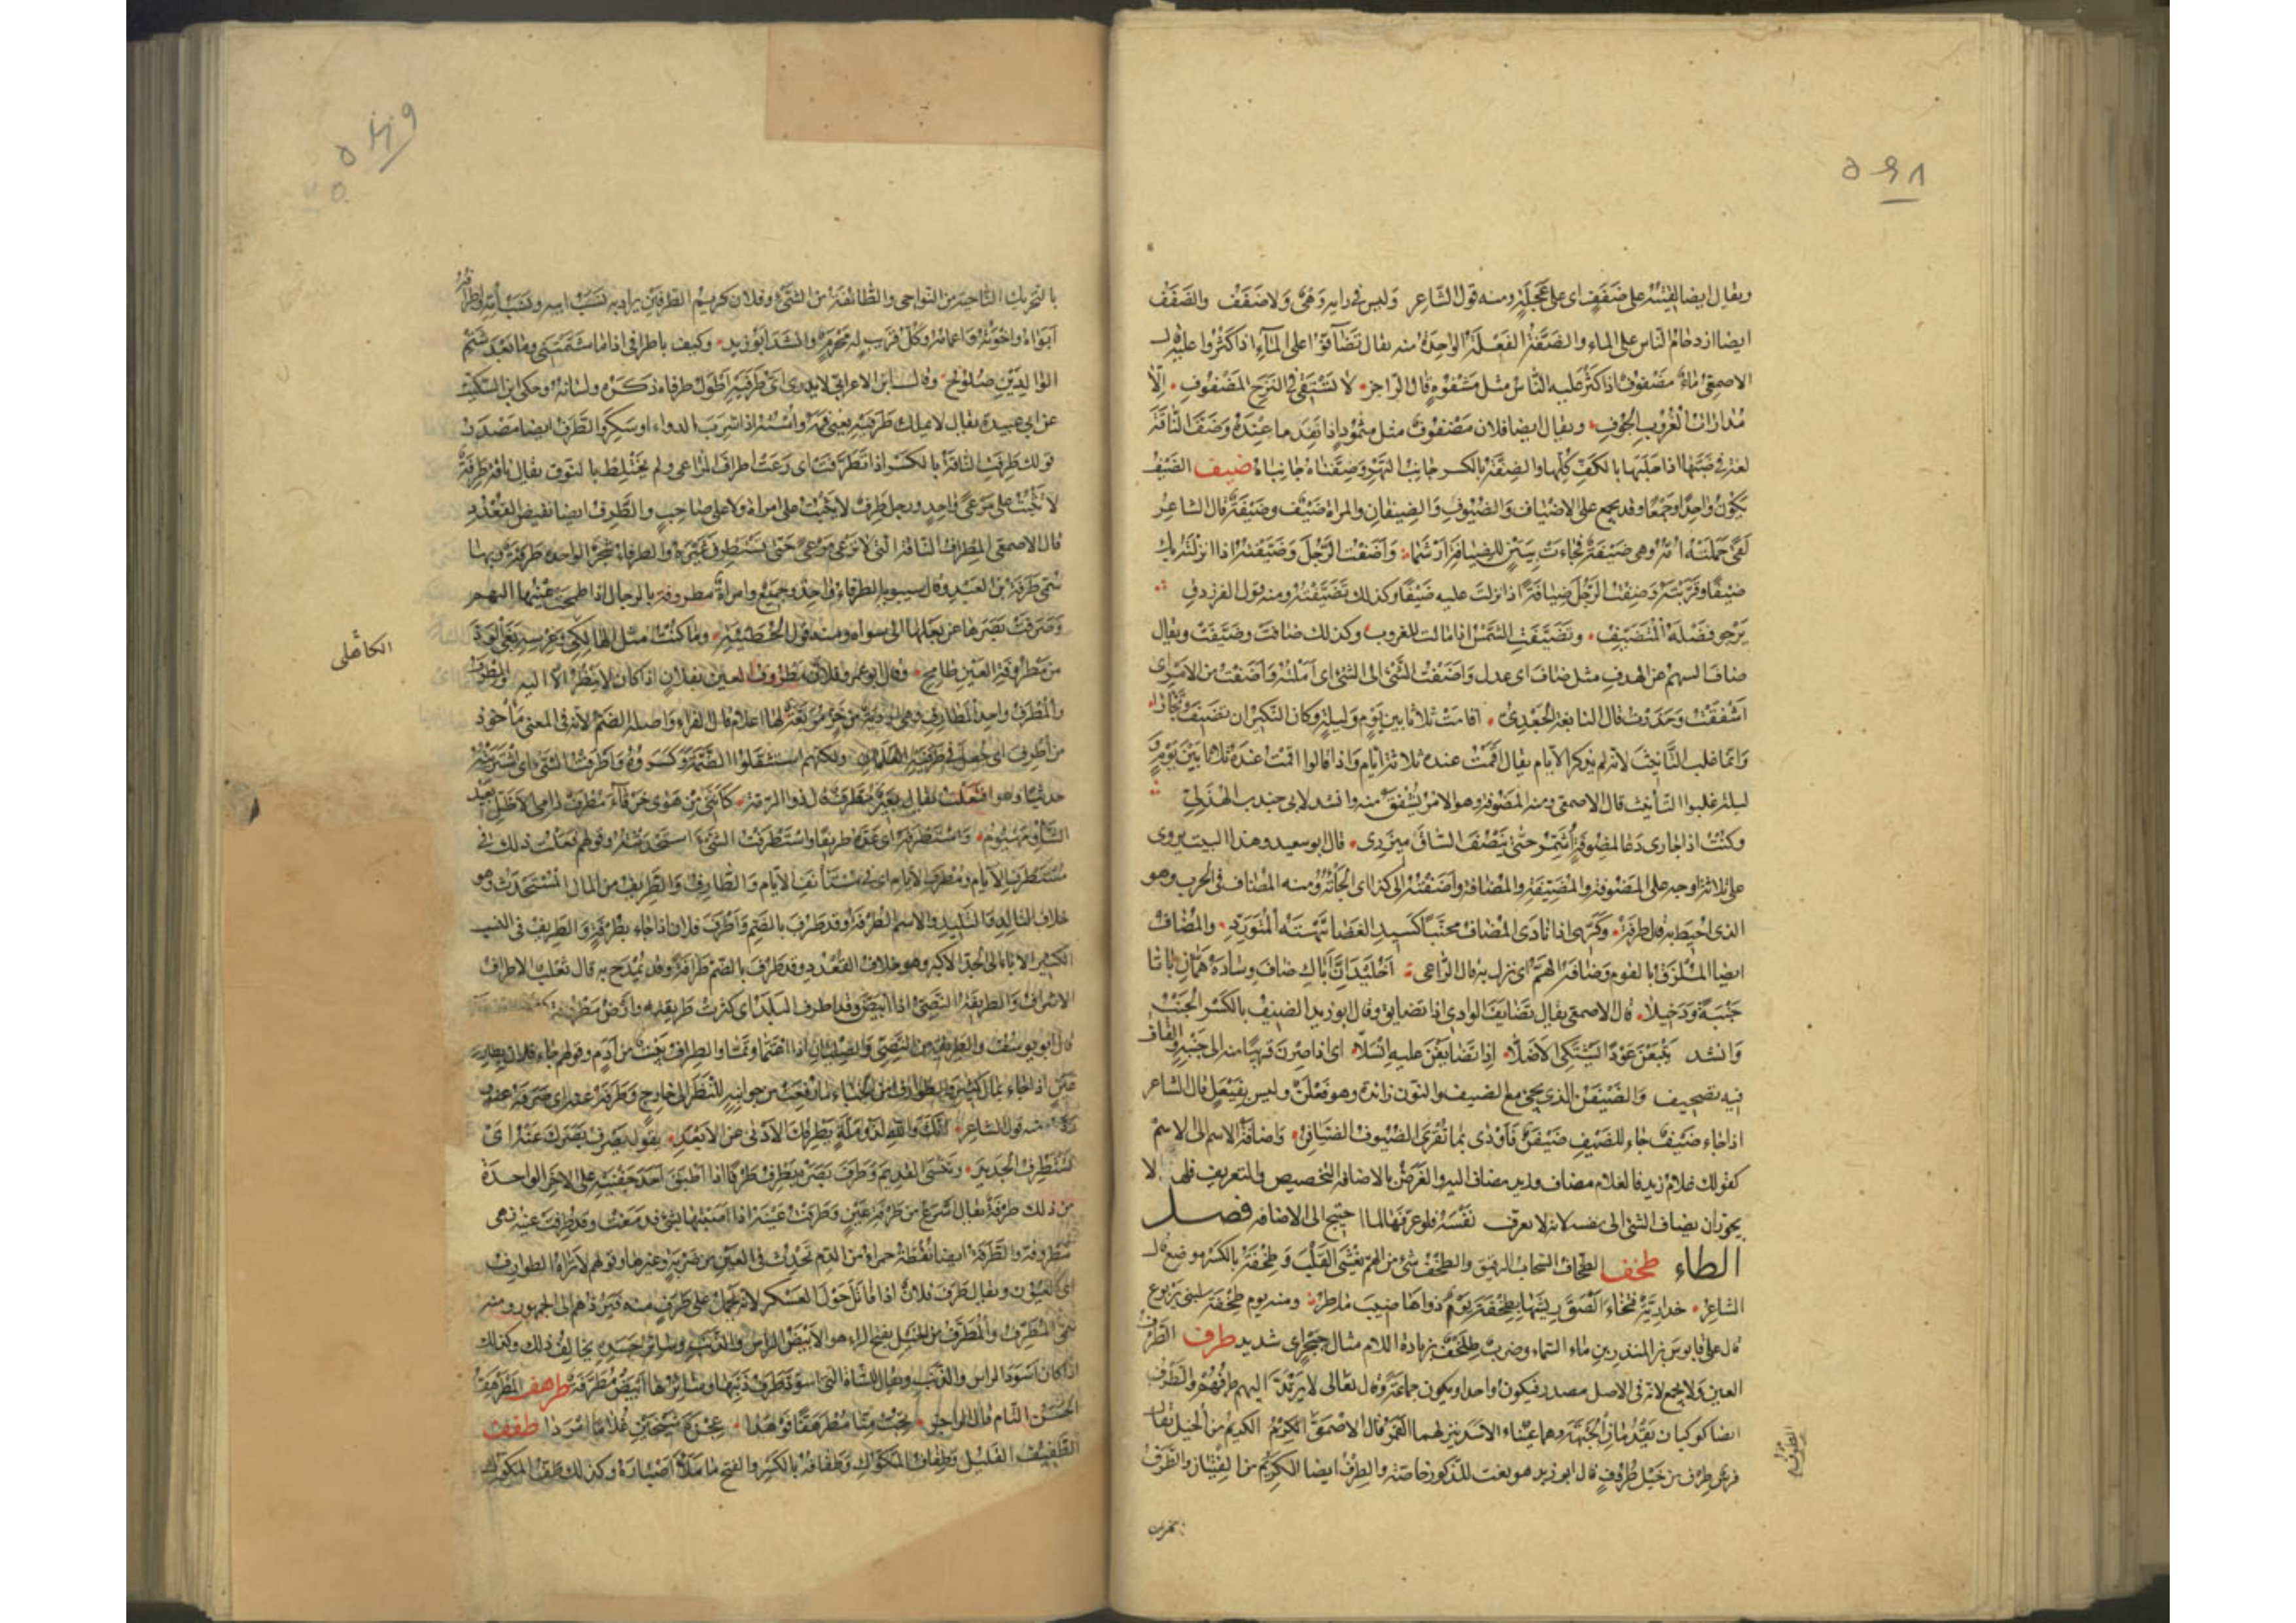 ويقال ايضا لقيته على ضفف اى على عجلة ومنه قول الشاعر وليس فى رايه وهى ولا ضفف والضفف
ايضا ازدحام الناس على الماء والضفة الفعلة الواحدة منه يقال تضافوا على الماء اذا كثروا عليه قال
الاصمعى ماء مضفوف اذا كثر عليه الناس مثل مشفوه قال الراجز لا تستقى فى النزح المضفوف الا
مدارات الغروب الجوف ويقال ايضا فلان مضفوف مثل مثمود اذا نفد ما عنده وضف الناقة
لغة فى ضبها اذا حلبها بالكف كلها والضفة بالكسر جانب النهر وضفتاه جانباه ضيف الضيف
يكون واحدا وجمعا وقد يجمع على الاضياف والضيوف والضيفان والمراة ضيف وضيفة قال الشاعر
لقى حملته امه وهى ضيفة فجاءت بيتن للضيافة ارشما واضفت الرجل وضيفته اذا انزلته بك
ضيفا وقربته وضفت الرجل ضيافة اذا نزلت عليه ضيفا وكذلك تضيفته ومنه قول الفرزدق
يرجو فضله المتضيف وتضيفت الشمس اذا مالت للغروب وكذلك ضافت وضيفت ويقال
ضاف السهم عن الهدف مثل صاف اى عدل واضفت الشئ الى الشئ اى املته واضفت من الامر اى
اشفقت وحذرت قال النابغة الجعدى اقامت ثلاثا بين يوم وليلة وكان النكير ان تضيف وتجارا
وانما غلب التانيث لانه لم يذكر الايام يقال اقمت عنده ثلاثة ايام واذا قالوا اقمت عنده ثلاثا بين يوم و
ليلة غلبوا التانيث قال الاصمعى ومنه المضوفة وهو الامر يشفق منه وانشد لابى جندب الهذلى
وكنت اذا جارى دعا لمضوفة اشمر حتى ينصف الساق ميزرى قال ابو سعيد وهذا البيت يروى
على ثلاثة اوجه على المضوفة والمضيفة والمضافة واضفته الى كذا اى الجاته ومنه المضاف فى الحرب وهو
الذى احيط به قال طرفة وكرى اذا نادى المضاف محنبا كسيد الغضا نبهته المتورد والمضاف
ايضا الملزق بالقوم وضافه الهم اى نزل به قال الراعى اخليد ان اباك ضاف وساده همان باتا
جنبة ودخيلا قال الاصمعى يقال تضايف الوادى اذا تضايق وقال ابو زيد الضيف بالكسر الجنب
وانشد يتبعن عودا يشتكى الاضلا اذا تضايفن عليه انسلا اى اذا صرن قريبا منه الى جنبه والقاف
فيه تصحيف والضيفن الذى يجئ مع الضيف والنون زائدة وهو فعلن وليس بفيعل قال الشاعر
اذا جاء ضيف جاء للضيف ضيفن فاودى بما تقرى الضيوف الضيافن واضافة الاسم الى الاسم
كقولك غلام زيد فالغلام مضاف وزيد مضاف اليه والغرض بالاضافة التخصيص والتعريف فلهذا لا
يجوز ان يضاف الشئ الى نفسه لانه لا يعرف نفسه فلو عرفها لما احتيج الى الاضافة فصل
الطاء طخف الطخاف السحاب الرقيق والطخف شئ من الهم يغشى القلب وطخفة بالكسر موضع قال
الشاعر خدارية فتخاء الصق ريشها بطخفة يوم ذو اهاضيب ماطر ومنه يوم طخفة لبنى يربوع
قال على قابوس بن المنذر بن ماء السماء وضرب طلخف بزيادة اللام مثال حبجر اى شديد طرف الطرف
العين ولا يجمع لانه فى الاصل مصدر فيكون واحدا ويكون جماعة وقال تعالى لا يرتد اليهم طرفهم والطرف
ايضا كوكبان يقدمان الجبهة وهما عينا الاسد ينزلهما القمر قال الاصمعى الطرف الكريم من الخيل يقال
فرس طرف من خيل طروف قال ابو زيد هو نعت للذكور خاصة والطرف ايضا الكريم من الفتيان والطرف
بالتحريك الناحية من النواحى والطائفة من الشئ وفلان كريم الطرفين يراد به نسب ابيه ونسب امه واطرافه
ابواه واخوته واعمامه وكل قريب له محرم وانشد ابو زيد وكيف باطرافى اذا ما شتمتنى وما بعد شتم
الوالدين صلوح وقال ابن الاعرابى لا يدرى اى طرفيه اطول طرفاه ذكره ولسانه وحكى ابن السكيت
عن ابى عبيدة يقال لا يملك طرفيه يعنى فمه واسته اذا شرب الدواء او سكر والطرف ايضا مصدر
قولك طرفت الناقة بالكسر اذا تطرفت اى رعت اطراف المراعى ولم تختلط بالنوق يقال ناقة طرفة
لا تثبت على مرعى واحد ورجل طرف لا يثبت على امراة ولا على صاحب والطرف ايضا نقيض القعدد
قال الاصمعى المطراف الناقة التى لا ترعى مرعى حتى تستطرف غيره والطرفاء شجر الواحدة طرفة وبها
سمى طرفة بن العبد وقال سيبويه الطرفاء واحد وجميع وامراة مطروفة بالرجال اذا طمحت عينها اليهم
وصرفت بصرها عن بعلها الى سواه ومنه قول الحطيئة وما كنت مثل الهالكى وعرسه بغى الود
الكاهلى
من مطروفة العين طامح وقال ابو عمرو فلان مطروف العين بفلان اذا كان لا ينظر الا اليه والمطرف
والمطرف واحد المطارف وهى اردية من خز مربعة لها اعلام قال الفراء واصله الضم لانه فى المعنى ماخوذ
من اطرف اى جعل فى طرفيه العلمان ولكنهم استثقلوا الضمة فكسروه واطرفت الشئ اى اشتريته
حديثا وهو افتعلت يقال بعير مطرف قال ذو الرمة كاننى من هوى خرقاء مطرف دامى الاظل بعيد
الشاو مهيوم واستطرفه اى عده طريفا واستطرفت الشئ استحدثته وقولهم فعلت ذلك فى
مستطرف الايام ومطرف الايام اى فى مستانف الايام والطارف والطريف من المال المستحدث وهو
خلاف التالد والتليد والاسم الطرفة وقد طرف بالضم واطرف فلان اذا جاء بطرفة والطريف فى النسب
الكثير الاباء الى الجد الاكبر وهو خلاف القعدد وقد طرف بالضم طرافة وقد يمدح به قال ثعلب الاطراف
الاشراف والطريفة النصى اذا ابيض وقد اطرف البلد اى كثرت طريفته وارض مطروفة
قال ابو يوسف والطريفة من النصى والصليان اذا اعتما وتما والطراف بيت من ادم وقولهم جاء فلان بطارفة
عين اذا جاء بمال كثير والطوارف من الخباء ما رفعت من جوانبه للنظر الى خارج وطرفه عنه اى صرفه عنه
ومنه قول الشاعر انك والله لذو ملة يطرفك الادنى عن الابعد يقول يصرف بصرك عنه اى
تستطرف الجديد وتنسى القديم وطرف بصره يطرف طرفا اذا اطبق احد جفنيه على الاخر الواحدة
من ذلك طرفة يقال اسرع من طرفة عين وطرفت عينه اذا اصبتها بشئ فدمعت وقد طرفت عينه فهى
مطروفة والطرفة ايضا نقطة حمراء من الدم تحدث فى العين من ضربة وغيرها وقولهم لا تراه الطوارف
اى العيون ويقال طرف فلان اذا قاتل حول العسكر لانه يحمل على طرف منهم فيردهم الى الجمهور ومنه
سمى المطرف والمطرف من الخيل بفتح الراء هو الابيض الراس والذنب وسائر جسده يخالف ذلك وكذلك
اذا كان اسود الراس والذنب ويقال للشاة التى اسود طرف ذنبها وسائرها ابيض مطرفة طرهف المطرهف
الحسن التام قال الراجز تحب منا مطرهفا فوهدا عجزة شيخين غلاما امردا طفف
الطفيف القليل وطفاف المكوك وطفافه بالكسر والفتح ما ملا اصباره وكذلك طف المكوك